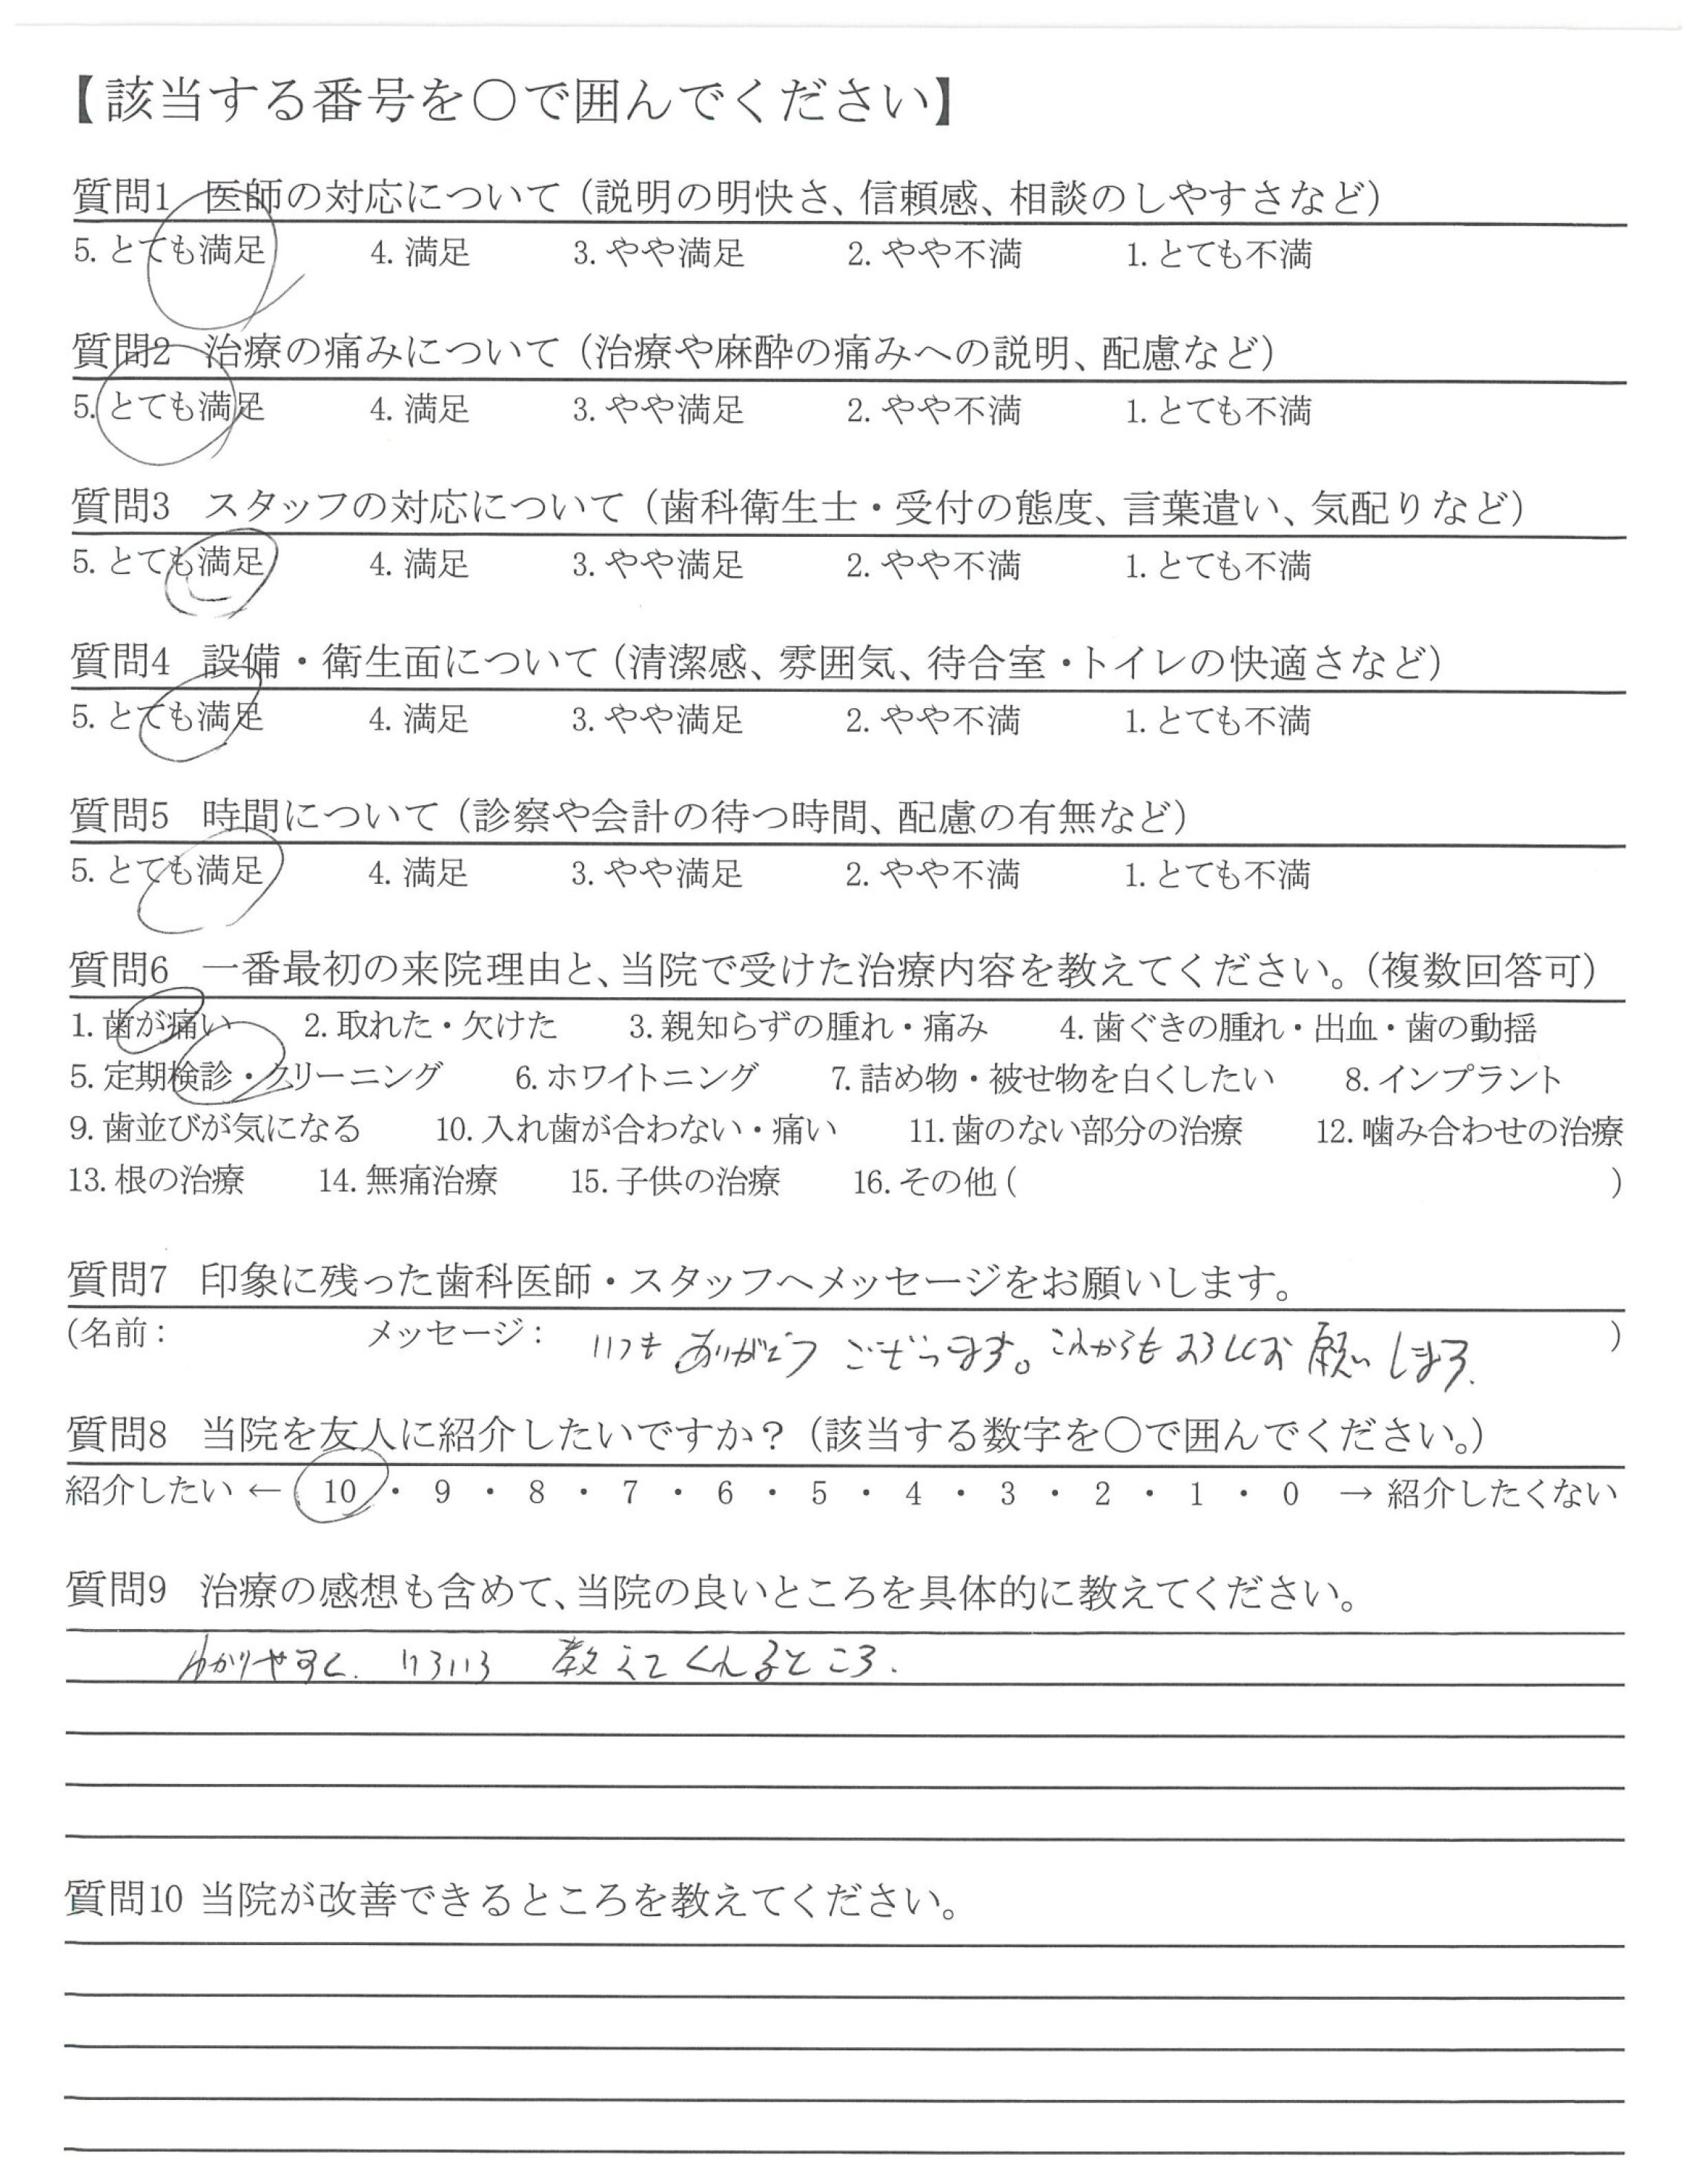 【該当する番号を〇で囲んでください】
質問1 医師の対応について（説明の明快さ、信頼感、相談のしやすさなど）
5. とても満足 4. 満足 3. やや満足 2. やや不満 1. とても不満
質問2 治療の痛みについて（治療や麻酔の痛みへの説明、配慮など）
5. とても満足 4. 満足 3. やや満足 2. やや不満 1. とても不満
質問3 スタッフの対応について（歯科衛生士・受付の態度、言葉遣い、気配りなど）
5. とても満足 4. 満足 3. やや満足 2. やや不満 1. とても不満
質問4 設備・衛生面について（清潔感、雰囲気、待合室・トイレの快適さなど）
5. とても満足 4. 満足 3. やや満足 2. やや不満 1. とても不満
質問5 時間について（診察や会計の待つ時間、配慮の有無など）
5. とても満足 4. 満足 3. やや満足 2. やや不満 1. とても不満
質問6 一番最初の来院理由と、当院で受けた治療内容を教えてください。（複数回答可）
1. 歯が痛い 2. 取れた・欠けた 3. 親知らずの腫れ・痛み 4. 歯ぐきの腫れ・出血・歯の動揺
5. 定期検診・クリーニング 6. ホワイトニング 7. 詰め物・被せ物を白くしたい 8. インプラント
9. 歯並びが気になる 10. 入れ歯が合わない・痛い 11. 歯のない部分の治療 12. 噛み合わせの治療
13. 根の治療 14. 無痛治療 15. 子供の治療 16. その他 ( )
質問7 印象に残った歯科医師・スタッフへメッセージをお願いします。
(名前： メッセージ： いつもありがとうございます。これからもよろしくお願いします。 )
質問8 当院を友人に紹介したいですか？（該当する数字を〇で囲んでください。）
紹介したい ← 10 ・ 9 ・ 8 ・ 7 ・ 6 ・ 5 ・ 4 ・ 3 ・ 2 ・ 1 ・ 0 → 紹介したくない
質問9 治療の感想も含めて、当院の良いところを具体的に教えてください。
わかりやすく、いろいろ 教えてくれるところ.
質問10 当院が改善できるところを教えてください。